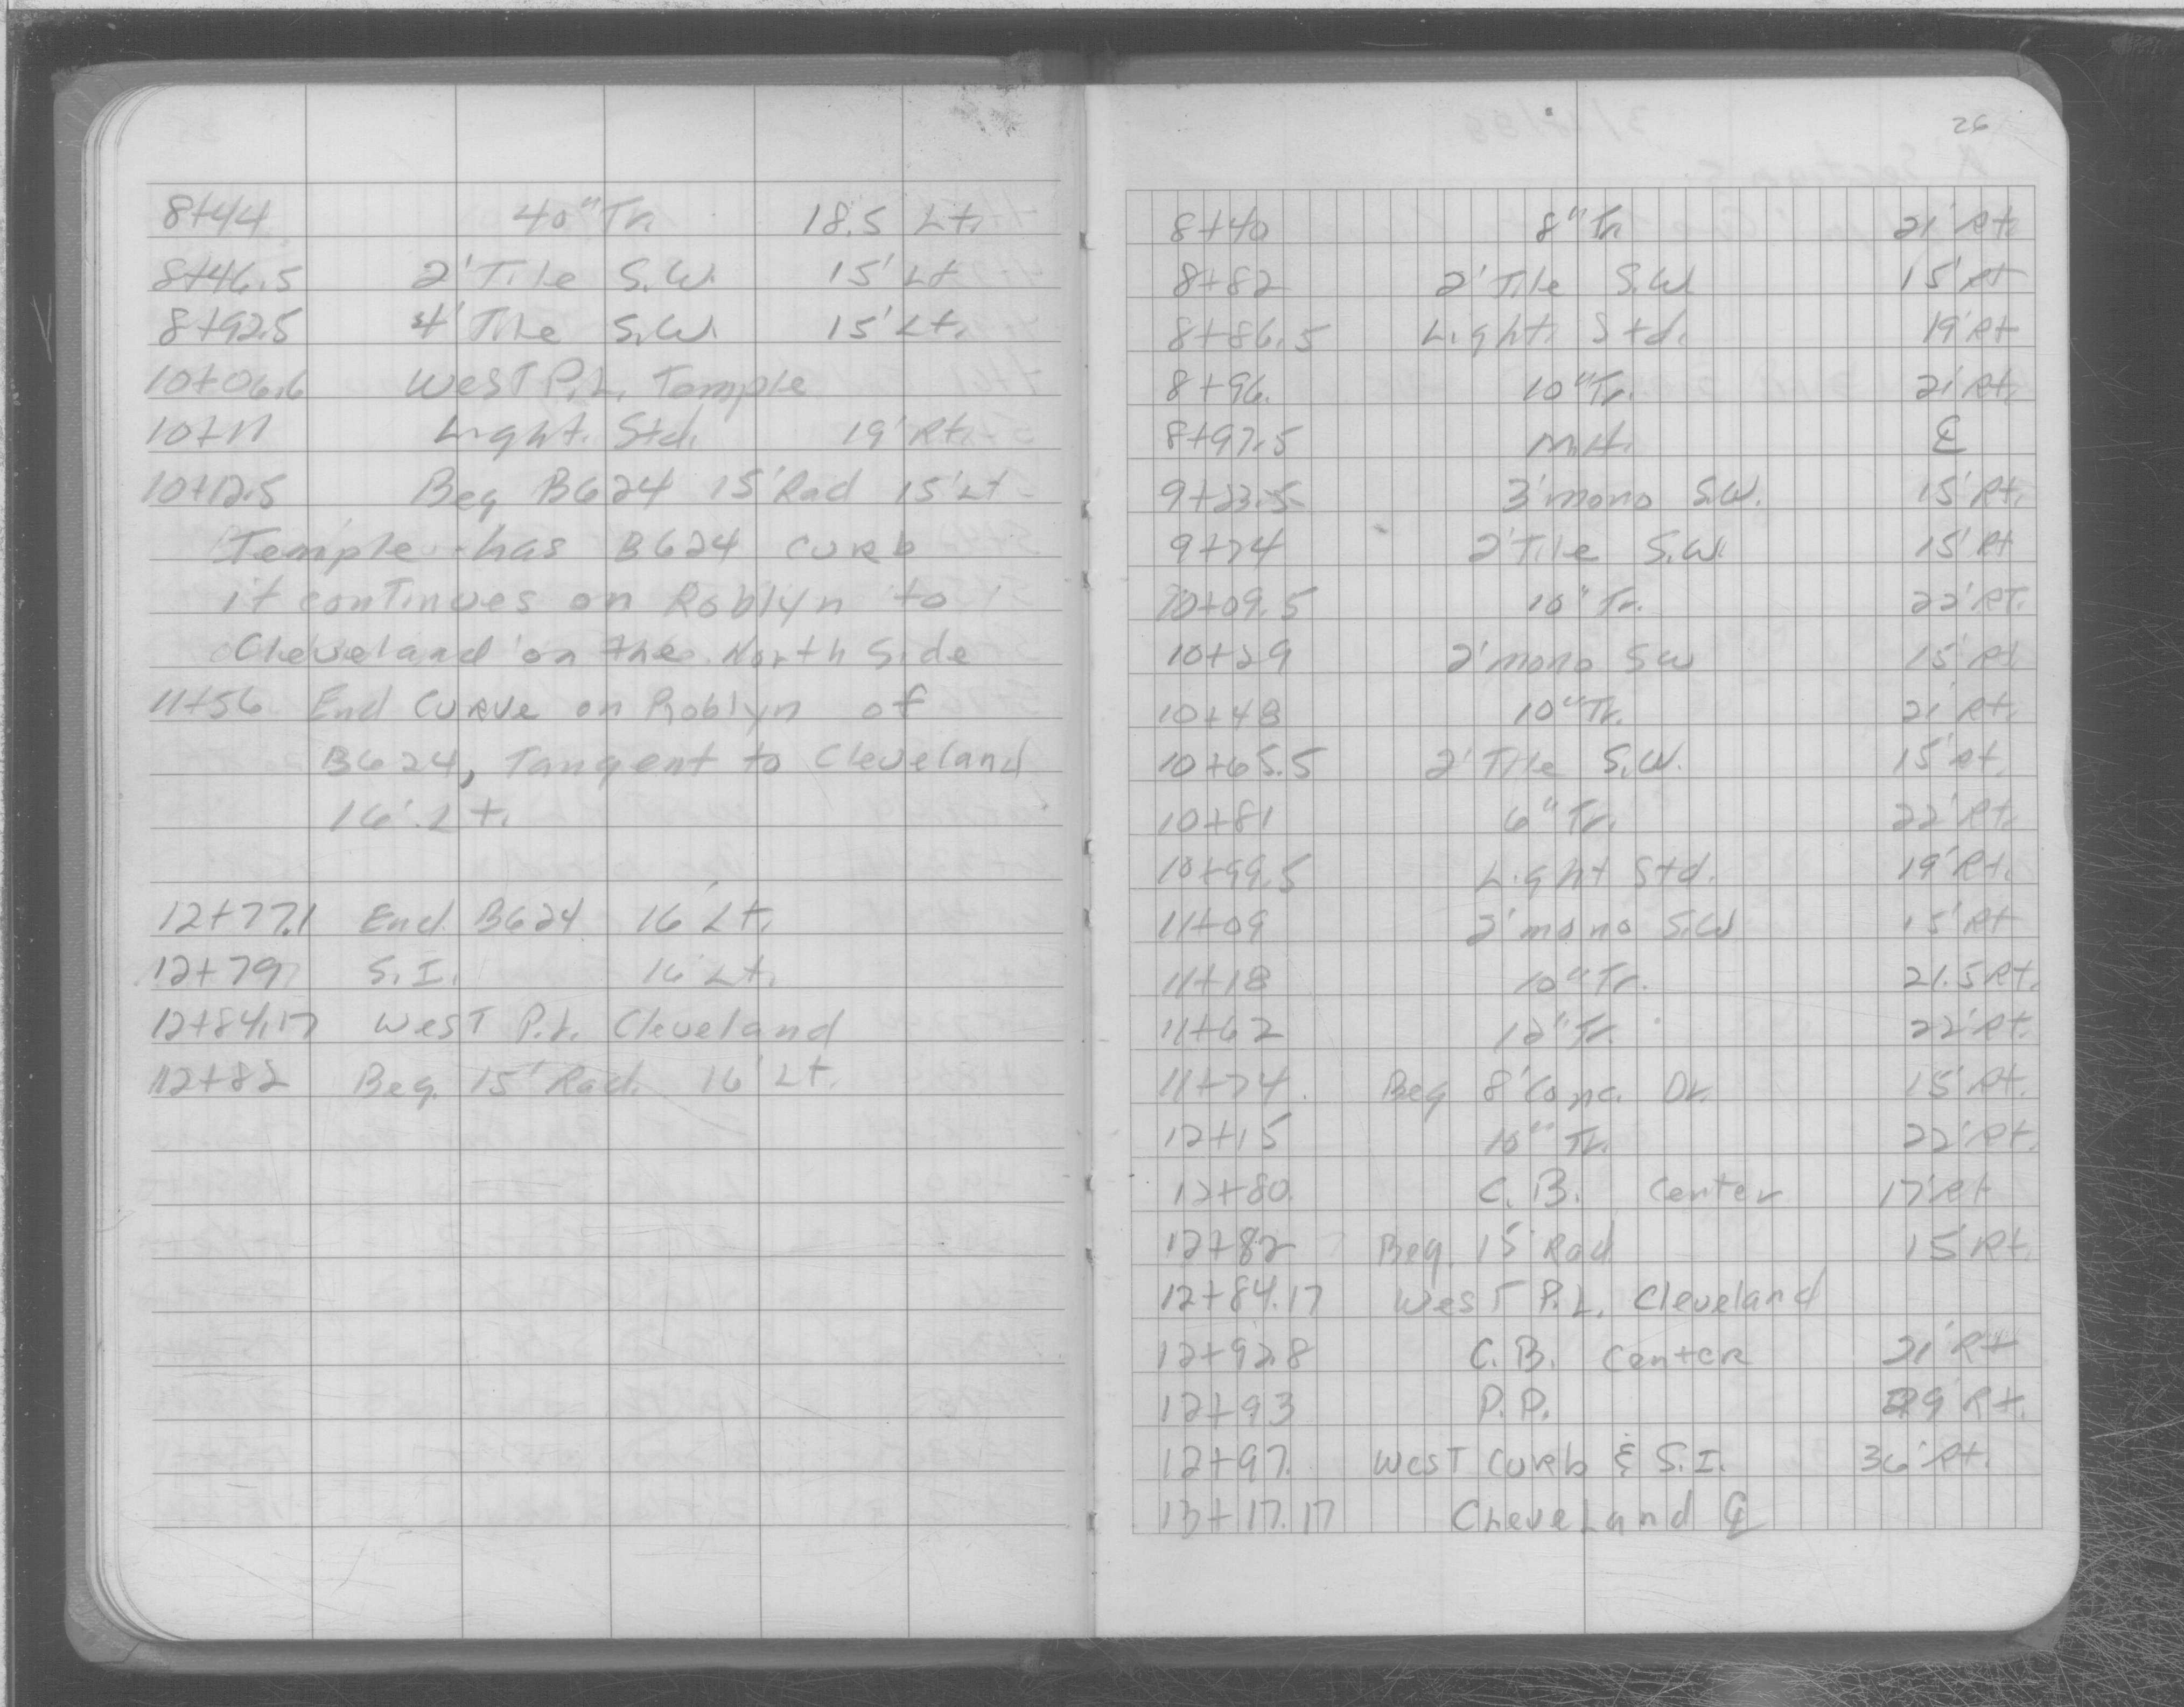 8+44 40" Tr. 18.5 Lt.
8+46.5 2' Tile S.W. 15' Lt
8+92.5 4' Tile S.W. 15' Lt.
10+06.6 West P.L. Temple
10+11 Light. Std. 19' Rt.
10+12.5 Beg B624 15' Rad 15' Lt
Temple has B624 curb
it continues on Roblyn to
Cleveland on the North Side
11+56 End Curve on Roblyn of
B624, Tangent to Cleveland
16' Lt.
12+77.1 End B624 16' Lt.
12+79 S.I. 16' Lt.
12+84.17 West P.L. Cleveland
12+82 Beg. 15' Rad. 16' Lt.
26
8+40 8" Tr 21' Rt.
8+82 2' Tile S.W. 15' Rt
8+86.5 Light. Std. 19' Rt
8+96. 10" Tr. 21' Rt.
8+97.5 M.H. ℄
9+23.5 3' mono S.W. 15' Rt.
9+74 2' Tile S.W. 15' Rt
10+09.5 10" Tr. 22' RT.
10+29 2' mono SW 15' Rt
10+48 10" Tr. 21' Rt.
10+65.5 2' Tile S.W. 15' Rt.
10+81 6" Tr. 22' Rt.
10+99.5 Light Std. 19' Rt.
11+09 2' mono S.W 15' Rt
11+18 10" Tr. 21.5 Rt.
11+62 12" Tr. 22' Rt.
11+74. Beg 8' Conc. Dr. 15' Rt.
12+15 10" Tr. 22' Rt.
12+80. C.B. Center 17' Rt
12+82 Beg. 15' Rad 15' Rt.
12+84.17 West P.L. Cleveland
12+92.8 C.B. Center 21' Rt
12+93 P.P. Rt.
12+97. West Curb & S.I. 36' Rt.
13+17.17 Cleveland ℄